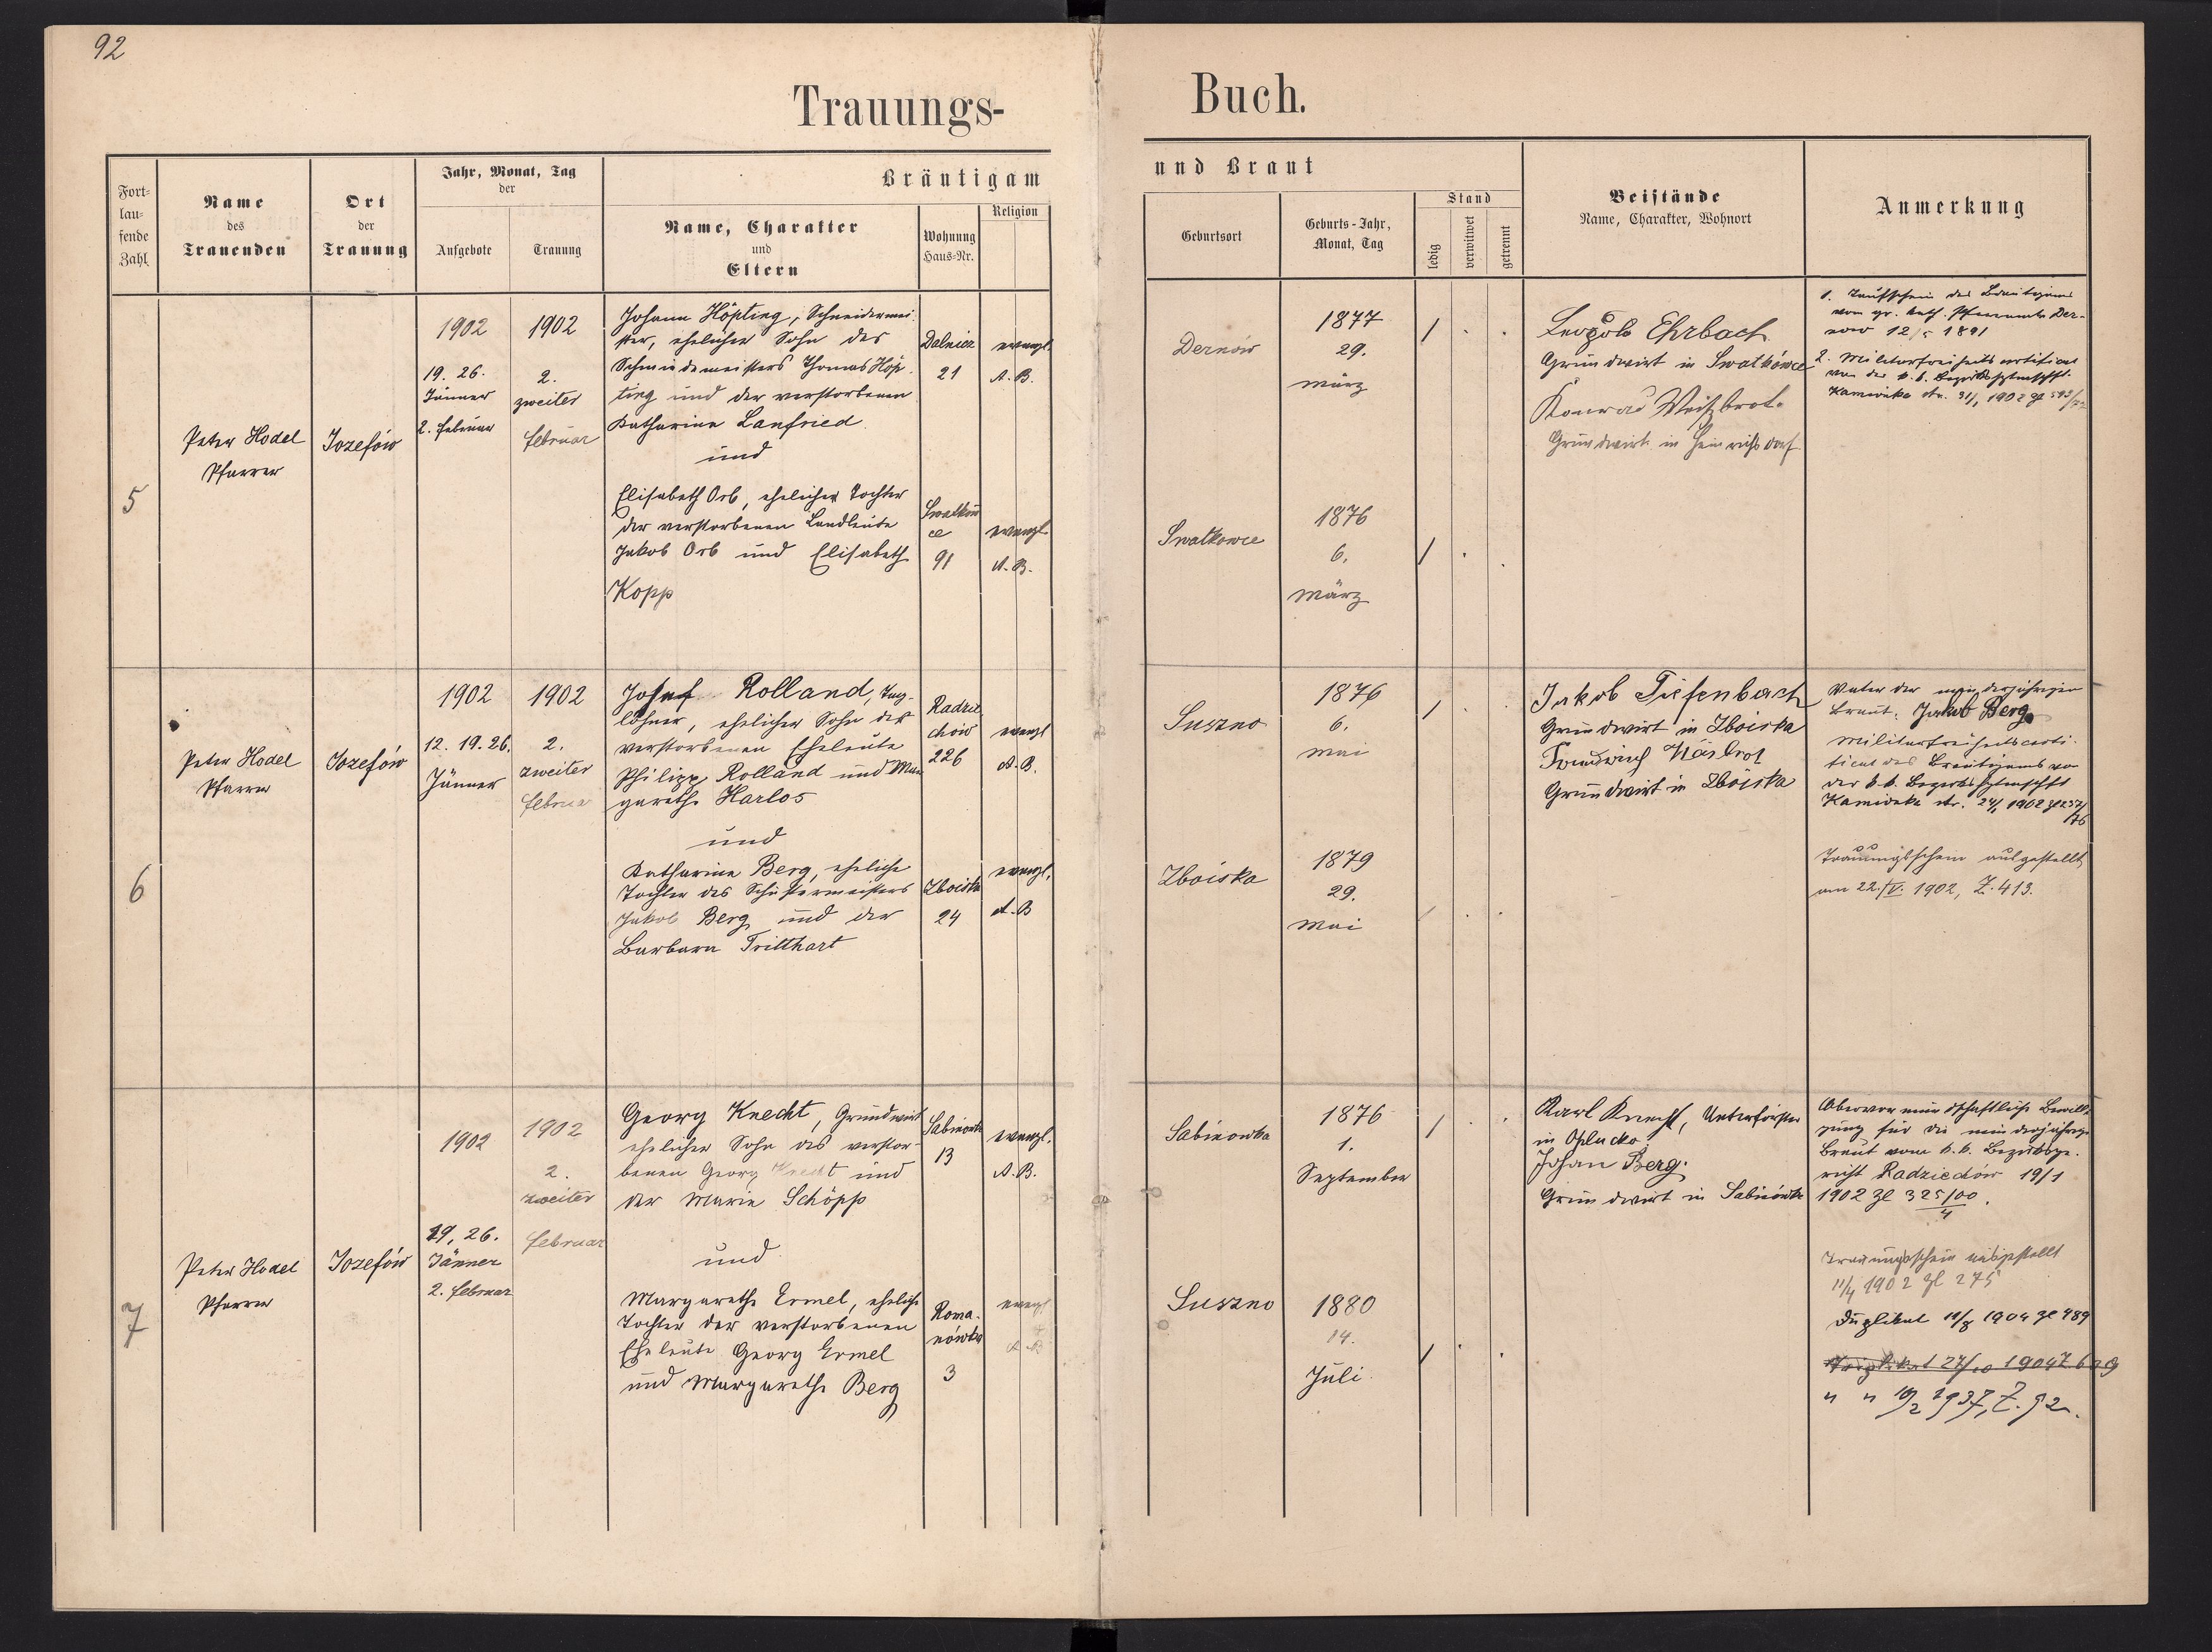 92
Trauungs-
Buch.
Fort-
lau-
fende
Zahl
Name
des
Trauenden
Ort
der
Trauung
Jahr, Monat, Tag
der
Aufgebote
Trauung
Bräutigam
Name, Charakter
und
Eltern
Wohnung
Haus-Nr.
Religion
und Braut
Geburtsort
Geburts-Jahr,
Monat, Tag
Stand
ledig
verwitwet
getrennt
Beistände
Name, Charakter, Wohnort
Anmerkung
5
Peter Hodel
Pfarrer
Jozefów
1902
19. 26.
Jänner
2. Februar
1902
2.
zweiter
Februar
Johann Höpting, Schneidermei-
ster, ehelicher Sohn des
Schmiedemeisters Thomas Höp-
ting und der verstorbenen
Katharina Lanfried.
und
Elisabeth Orb, ehelicher Tochter
der verstorbenen Landleute
Jakob Orb und Elisabeth
Kopp
Dalnicz
21
evangl.
A. B.
Swatkow
ce
91
evangl.
A. B.
Dernów
1877
29.
März
Swatkowce
1876
6.
März
Leopold Ehrbach
Grundwirt in Swatkówce
Konrad Weißbrot.
Grundwirt in Heinrichsdorf
1. Taufschein des Bräutigams
vom gr. kath. Pfarramte Der-
nów 12/5 1891
2. Militärfreiheitscertificat
von der k. k. Bezirkshptmschft.
Kamionka str. 31/1 1902
6
Peter Hodel
Pfarrer
Jozefów
1902
12. 19. 26.
Jänner
1902
2.
zweiter
Februar
Josef Rolland, Tag-
löhner, ehelicher Sohn der
verstorbenen Eheleute
Philipp Rolland und Mar-
garethe Harlos
und
Katharina Berg, eheliche
Tochter des Schustermeisters
Jakob Berg und der
Barbara Tritthart
Radzie
chów
226
evangl
A. B.
Zboiska
24
evangl.
A. B
Suszno
1876
6.
Mai
Zboiska
1879
29.
Mai
Jakob Tiefenbach
Grundwirt in Zboiska
Grundwirt in Zbóiska
Vater der minderjährigen
Braut: Jakob Berg
Militärfreiheitscerti-
ficat des Bräutigams von
der k. k. Bezirkshptmschft
Kamionka str. 24/1 1902
Trauungsschein ausgestellt
am 22./IV. 1902, Z. 413.
7
Peter Hodel
Pfarrer
Jozefów
1902
19, 26.
Jänner
2. Februar
1902
2.
zweiter
Februar
Georg Knecht, Grundwirt
ehelicher Sohn des verstor-
benen Georg Knecht und
der Marie Schöpp
und
Margarethe Ermel, eheliche
Tochter der verstorbenen
Eheleute Georg Ermel
und Margarethe Berg
Sabinówka
13
evangl.
A. B.
Roma-
nówka
3
evangl
A B
Sabinowka
1876
1.
September
Suszno
1880
14.
Juli
Karl Knecht, Unterförster
in Opłucko
Johan Berg.
Grundwirt in Sabinówka
Obervormundschaftliche Bewilli-
gung für die minderjährige
Braut vom k. k. Bezirksge-
richt Radziechów 19/1
1902 Zl 325/00
4
Trauungsschein ausgestellt
11/4 1902 Zl 275
Duplikat 11/8 1904 Zl 489
" " 19/2 1937, Z. 92.